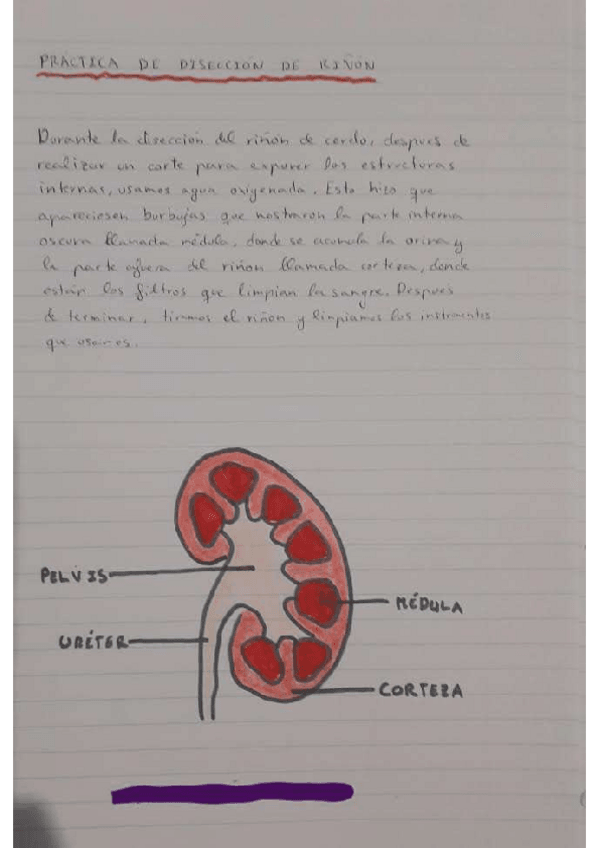 PRÁCTICA DE DISECCIÓN DE RIÑÓN
Durante la disección del riñón de cerdo, después de
realizar un corte para exponer las estructuras
internas, usamos agua oxigenada. Esto hizo que
apareciesen burbujas que mostraron la parte interna
oscura llamada médula, donde se acumula la orina y
la parte afuera del riñón llamada corteza, donde
están los filtros que limpian la sangre. Despues
de terminar, tiramos el riñón y limpiamos los instrumentos
que usamos.
PELVIS
MÉDULA
URÉTER
CORTEZA